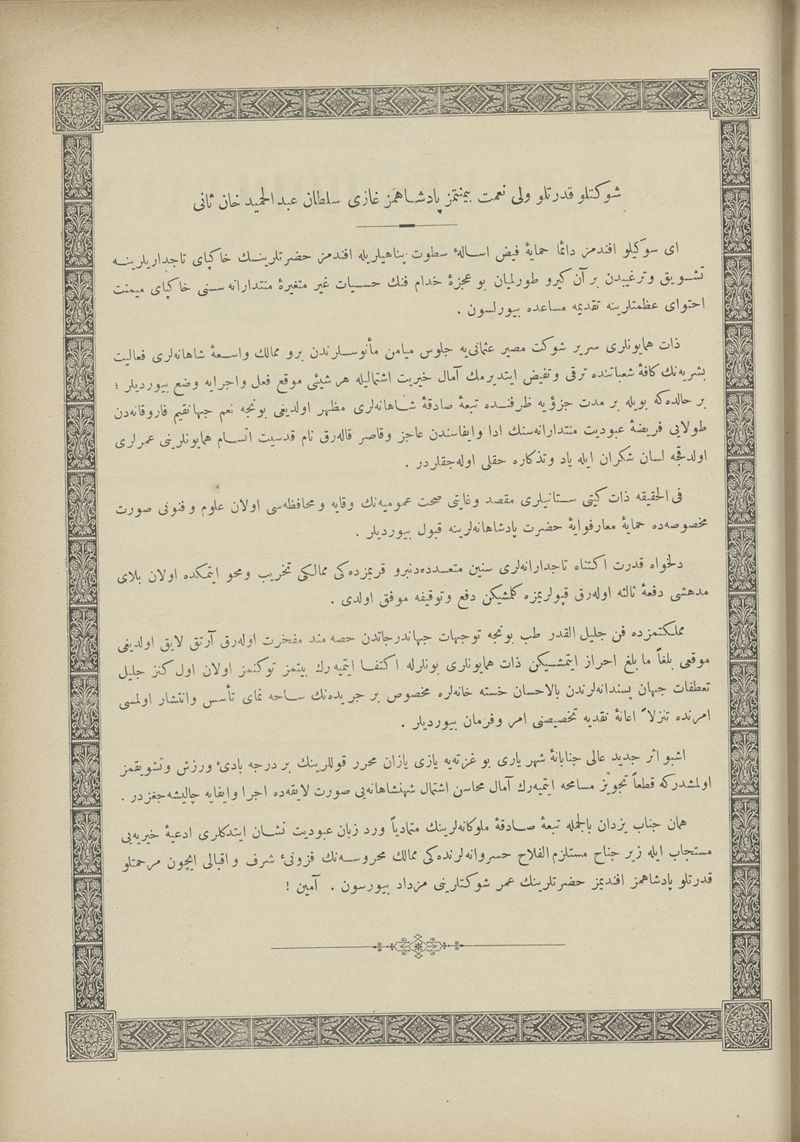 شوكتلو قدرتلو ولی نعمت بیمنتمز پادشاهمز غازی سلطان عبد الحمید خان ثانی
ای سوكیلو افندمز دائما حمایهٔ فیض اسالهٔ سطوت پناهیلریله افندمز حضرتلرینك خاكپای تاجداریلرینه
تشویق وترغیبدن بر آن كیرو طورلمیان بو عجزهٔ خدام فنك حسیات غیر متغیرهٔ منتدارانه سنی خاكپای میمنت
احتوای عظمتلرینه تقدیمه مساعده بیورلسون .
ذات همایونلری سریر شوكت مصیر عثمانی‌یه جلوس میامن مأنوسلرندن برو ممالك واسعهٔ شاهانه‌لری فعالیت
بشریه‌نك كافهٔ شعباتنده ترقی وتفیض ایتدیرمك آمال خیریت اشتمالیله هر شیئی موقع فعل واجرایه وضع بیوردیلر ؛
بر حالده‌كه بویله بر مدت جزؤیه ظرفنده تبعهٔ صادقهٔ شاهانه‌لری مظهر اولدیغی بونجه نعم جهانقیم فاروقانه‌دن
طولایی فریضهٔ عبودیت منتدارانه‌سنك ادا وایفاسندن عاجز وقاصر قاله‌رق نام قدسیت اتسام همایونلرینی عمرلری
اولدقجه لسان شكران ایله یاد وتذكاره حقلی اوله‌جقلردر .
فی الحقیقه ذات كیتی ستانیلری مقصد وغایتی صحت عمومیه‌نك وقایه و محافظه‌سی اولان علوم و فنونی صورت
مخصوصه‌ده حمایهٔ معارفوایهٔ حضرت پادشاهانه‌لرینه قبول بیوردیلر .
دلخواه قدرت اكتناه تاجدارانه‌لری سنین متعدده‌دنبرو قربمزده‌كی ممالكی تخریب ومحو ایتمكده اولان بلای
مدهشی دفعهٔ ثالثه اوله‌رق قپولریمزه كلشیكن دفع وتوقیفه موفق اولدی .
مملكتمزده فن جلیل القدر طب بونجه توجهات جهاندرجاتدن حصه مند مفخرت اوله‌رق آرتق لایق اولدیغی
موقعی بلغاً ما بلغ احراز ایتمشیكن ذات همایونلری بونلرله اكتفا ایتمیه‌رك بیتمز توكنمز اولان اول كنز جلیل
تعطفات جهان پسندانه‌لرندن بالاحسان خسته خانه‌لره مخصوص بر جریده‌نك ساحه نمای تأسس وانتشار اولمسی
امرنده تنزلاً اعانهٔ نقدیه تخصیصنی امر وفرمان بیوردیلر .
اشبو اثر جدید عالی جنابانهٔ شهر یاری بو غزته‌یه یازی یازان محرر قوللرینك بر درجه بادیٔ ورزش وتشویقمز
اولمشدركه قطعاً تجویز مسامحه ایتمیه‌رك آمال محاسن اشتمال شهنشاهانه‌یی صورت لایقه‌ده اجرا وایفایه چالیشه‌جغزدر .
همان جناب یزدان بالجمله تبعهٔ صادقهٔ ملوكانه‌لرینك متمادیاً ورد زبان عبودیت نشان ایتدكاری ادعیهٔ خیریه‌یی
مستجاب ایله زیر جناح مستلزم الفلاح خسروانه‌لرنده‌كی ممالك محروسه‌نك فزونیٔ شرف و اقبالی ایچون مرحمتلو
قدرتلو پادشاهمز افندیمز حضرتلرینك عمر شوكتلرینی مزداد بیورسون . آمین !